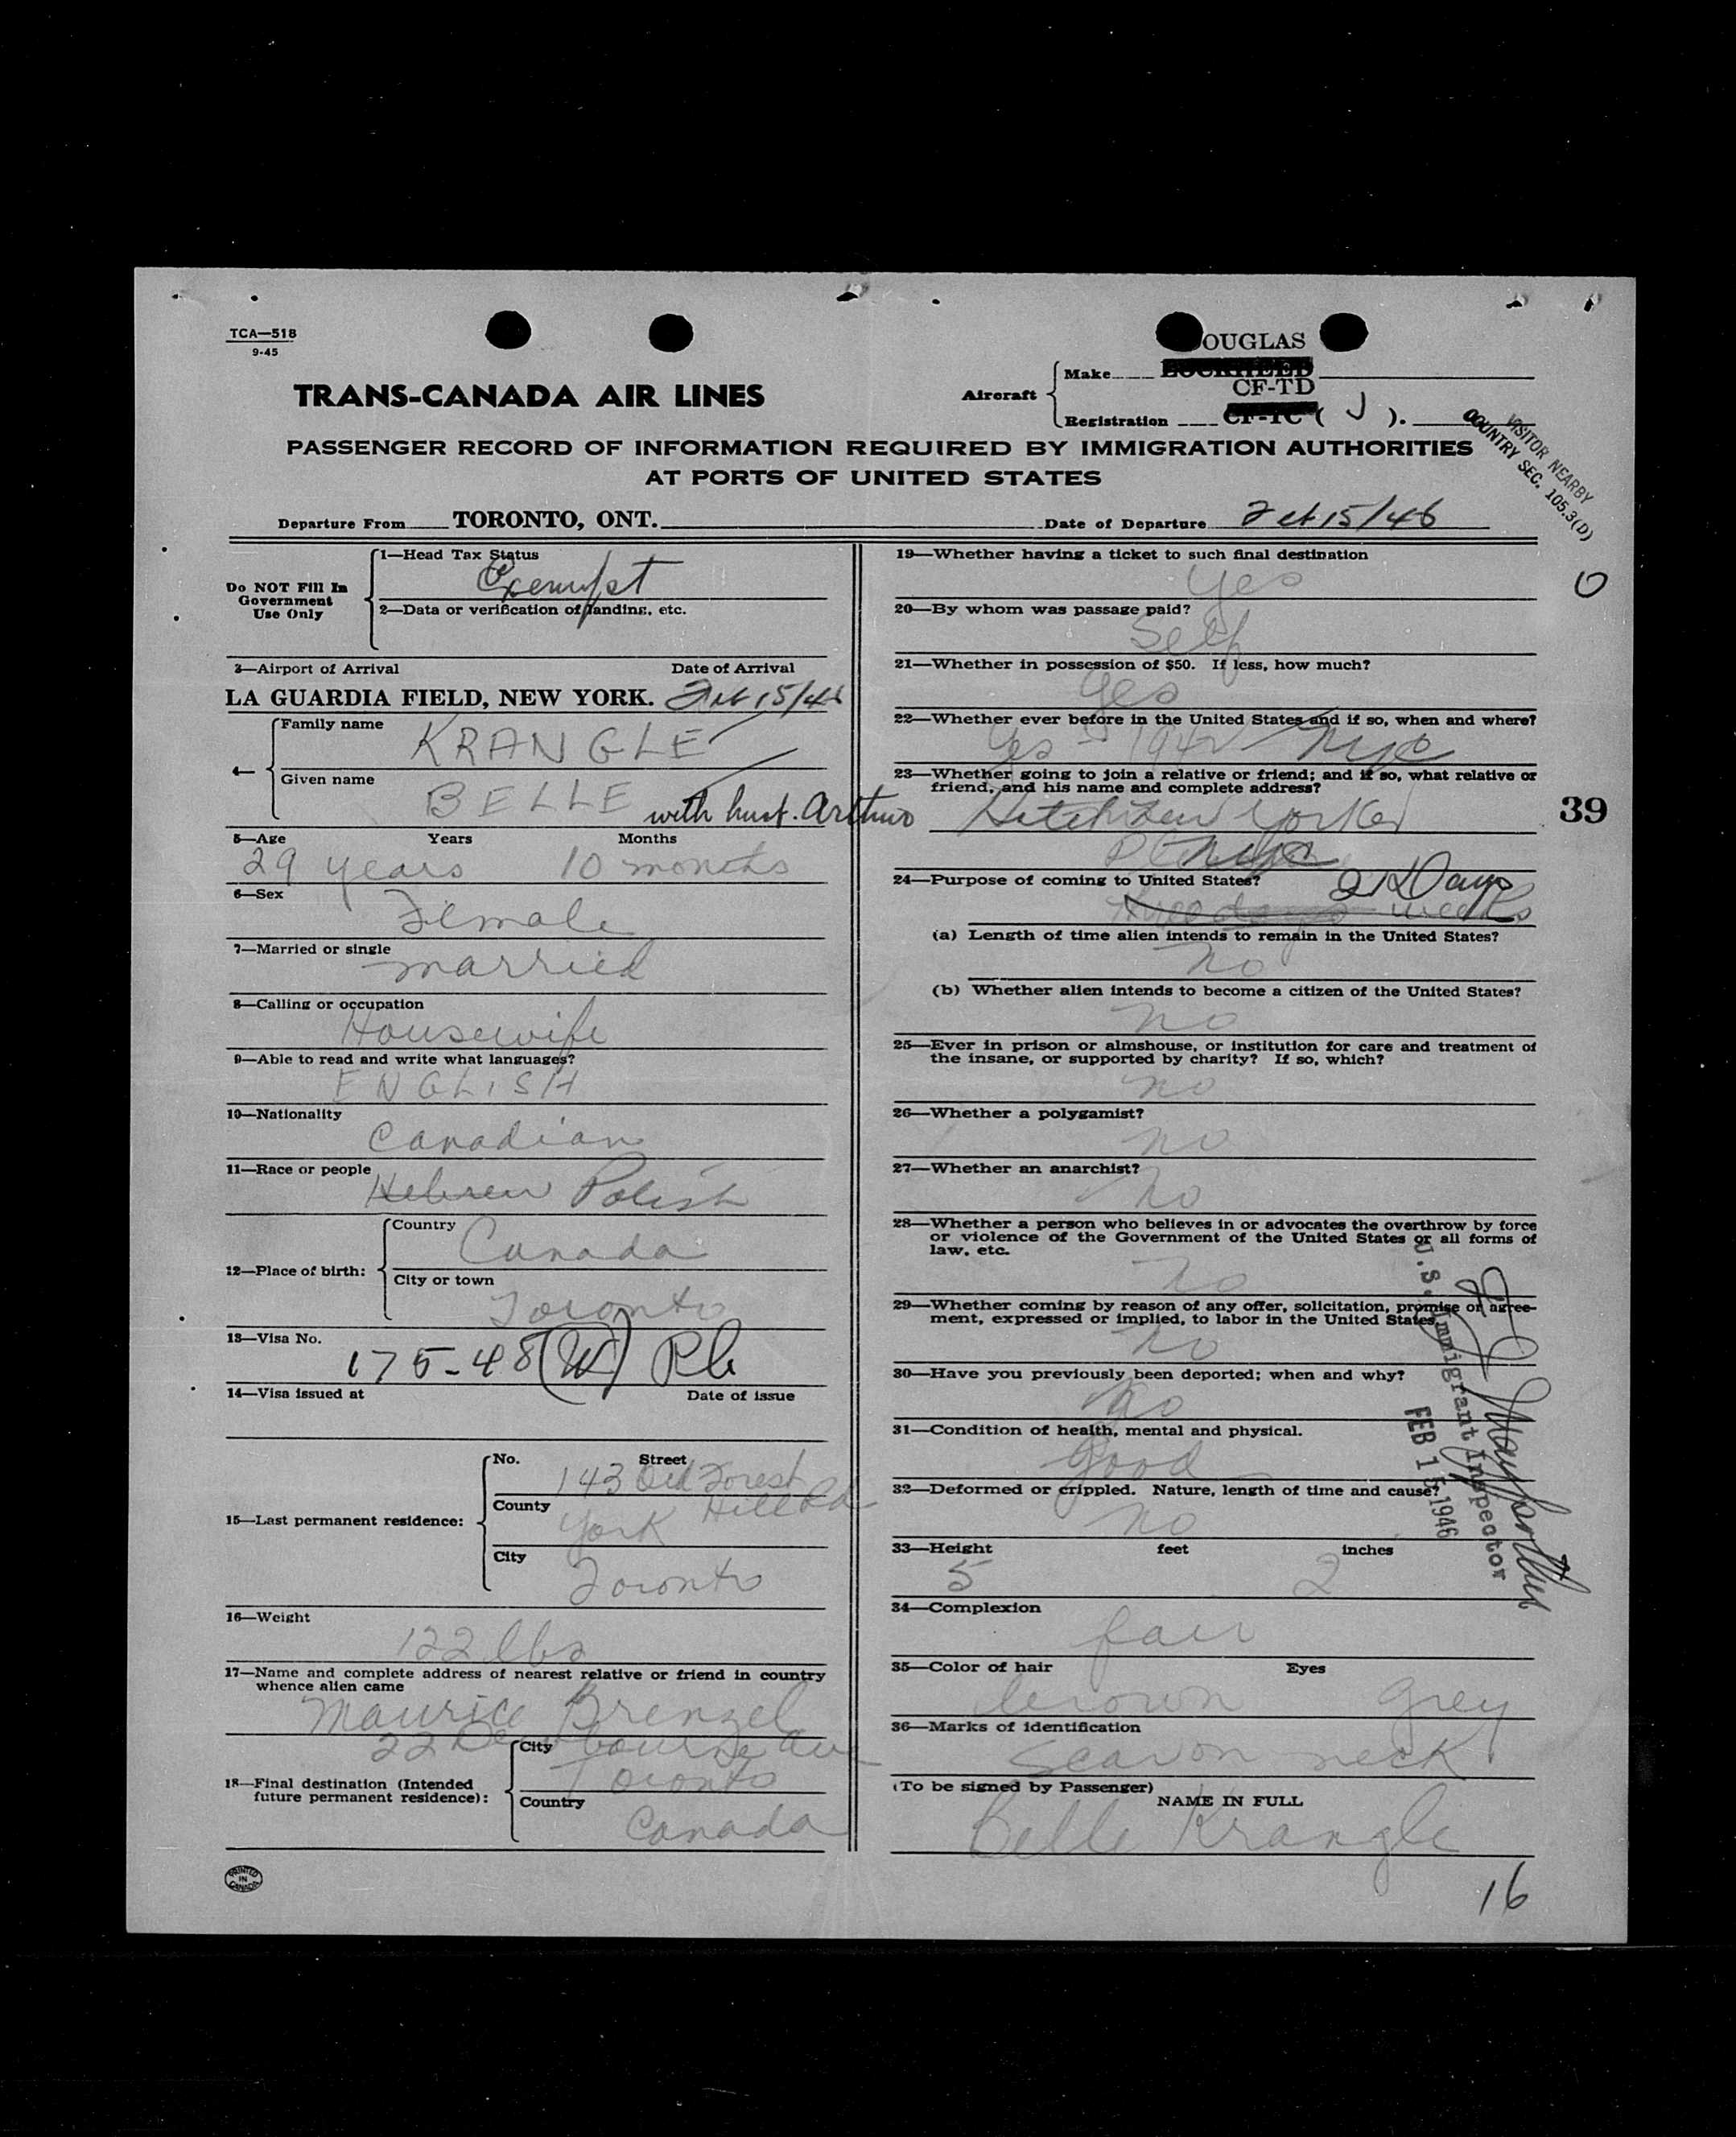 TCA—518
9-45
OUGLAS
TRANS-CANADA AIR LINES
Aircraft
Make LOCKHEED
CF-TD
Registration CF-TC ( J ).
VISITOR NEARBY
COUNTRY SEC. 105.3(D)
PASSENGER RECORD OF INFORMATION REQUIRED BY IMMIGRATION AUTHORITIES
AT PORTS OF UNITED STATES
Departure From TORONTO, ONT.
Date of Departure Feb 15/46
Do NOT Fill In
Government
Use Only
1—Head Tax Status
Exempt
2—Data or verification of landing, etc.
3—Airport of Arrival Date of Arrival
LA GUARDIA FIELD, NEW YORK. Feb 15/46
4—
Family name
KRANGLE
Given name
BELLE with husb. Arthur
5—Age Years Months
29 years 10 months
6—Sex
Female
7—Married or single
married
8—Calling or occupation
Housewife
9—Able to read and write what languages?
ENGLISH
10—Nationality
Canadian
11—Race or people
Hebrew Polish
12—Place of birth:
Country
Canada
City or town
Toronto
13—Visa No.
175-48 (W)
14—Visa issued at Date of issue
15—Last permanent residence:
No. Street
143 Old Forest
Hill Rd
County
York
City
Toronto
16—Weight
122 lbs
17—Name and complete address of nearest relative or friend in country
whence alien came
Maurice Brenzel
22
18—Final destination (Intended
future permanent residence):
City
Toronto
Country
Canada
PRINTED
IN
CANADA
19—Whether having a ticket to such final destination
yes
0
20—By whom was passage paid?
Self
21—Whether in possession of $50. If less, how much?
yes
22—Whether ever before in the United States and if so, when and where?
Yes - 1942 NYC
23—Whether going to join a relative or friend; and if so, what relative or
friend, and his name and complete address?
Yorker
NYC
39
24—Purpose of coming to United States?
21 Days
weeks
(a) Length of time alien intends to remain in the United States?
no
(b) Whether alien intends to become a citizen of the United States?
no
25—Ever in prison or almshouse, or institution for care and treatment of
the insane, or supported by charity? If so, which?
no
26—Whether a polygamist?
no
27—Whether an anarchist?
no
28—Whether a person who believes in or advocates the overthrow by force
or violence of the Government of the United States or all forms of
law, etc.
no
29—Whether coming by reason of any offer, solicitation, promise or agree-
ment, expressed or implied, to labor in the United States.
no
30—Have you previously been deported; when and why?
no
31—Condition of health, mental and physical.
good
32—Deformed or crippled. Nature, length of time and cause?
no
U.S. Immigrant Inspector
FEB 15 1946
33—Height feet inches
5 2
34—Complexion
fair
35—Color of hair Eyes
brown grey
36—Marks of identification
Scar on neck
(To be signed by Passenger)
NAME IN FULL
Belle Krangle
16